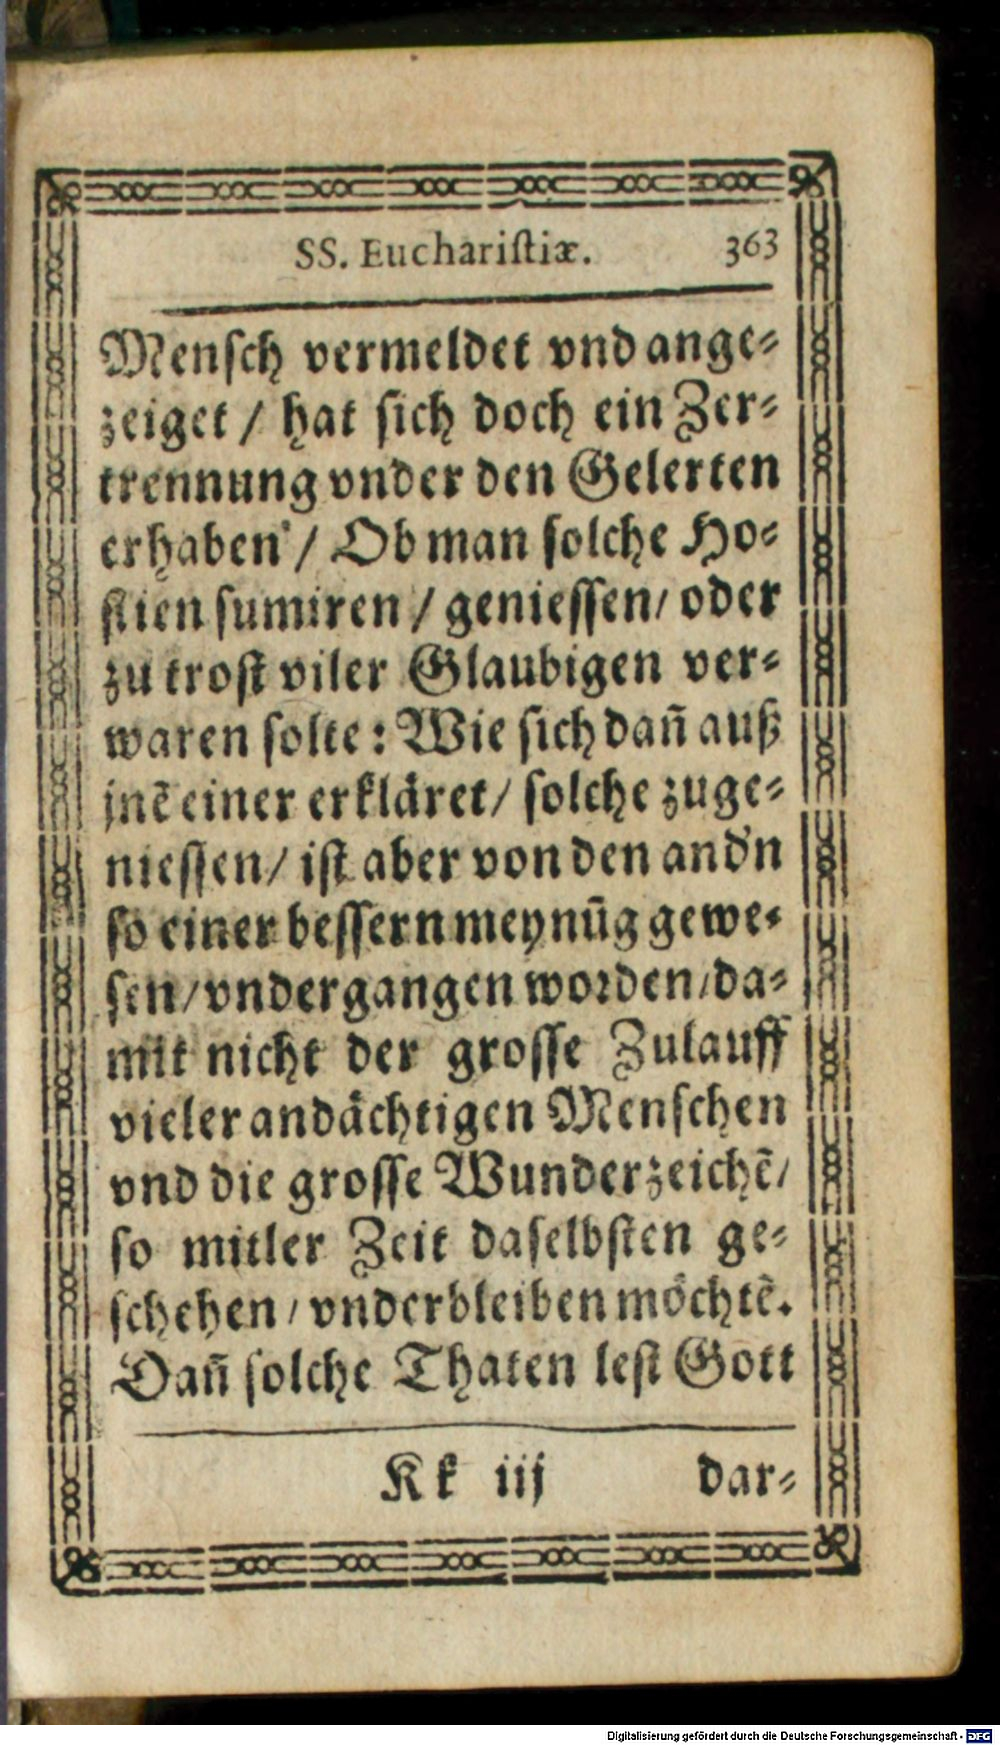 SS. Euchariſtiæ. 363
Menſch vermeldet vnd ange⸗
zeiget / hat ſich doch ein Zer⸗
trennung vnder den Gelerten
erhaben / Ob man ſolche Ho⸗
ſtien ſumiren / genieſſen / oder
zu troſt viler Glaubigen ver⸗
waren ſolte : Wie ſich dañ auß
jnē einer erkläret / ſolche zuge⸗
nieſſen / iſt aber von den and'n
ſo einer beſſern meynūg gewe⸗
ſen / vndergangen worden / da⸗
mit nicht der groſſe Zulauff
vieler andächtigen Menſchen
vnd die groſſe Wunderzeichē /
ſo mitler Zeit daſelbſten ge⸗
ſchehen / vnderbleiben möchtē.
Dañ ſolche Thaten leſt Gott
Kk iij dar⸗
Digitalisierung gefördert durch die Deutsche Forschungsgemeinschaft - DFG